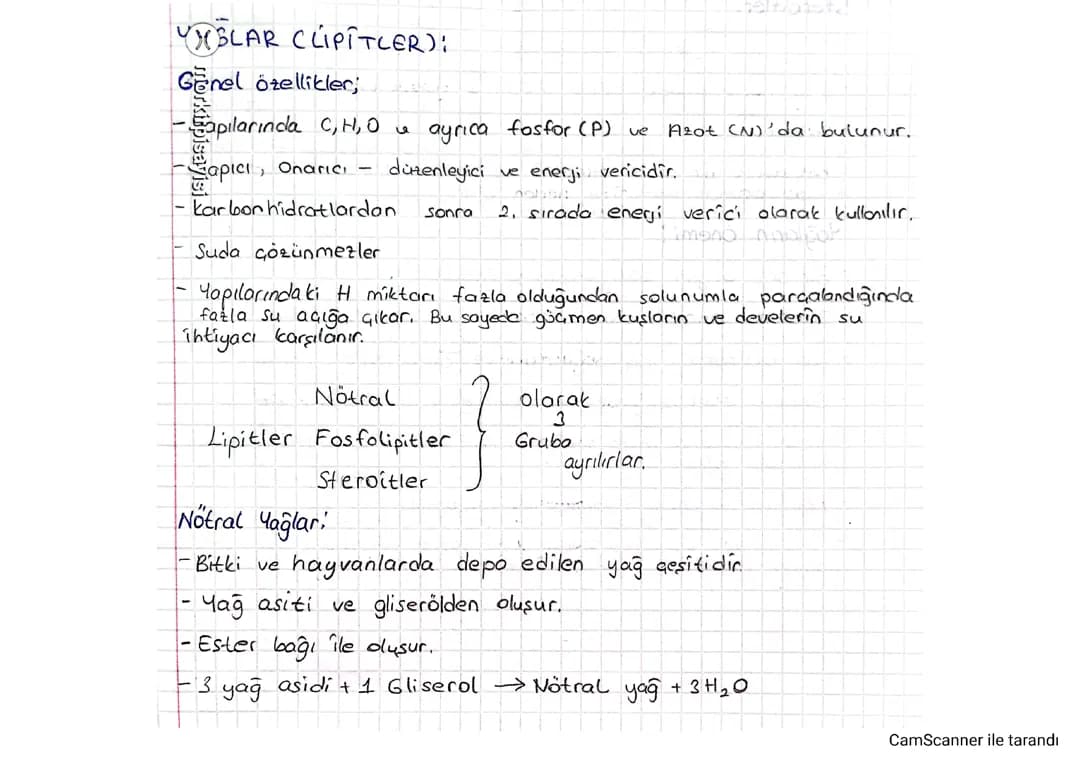 YAĞLAR (LİPİTLER):
Genel özellikler;
- Yapılarında C, H, O ve ayrıca fosfor (P) ve Azot (N)'da bulunur.
- Yapıcı, Onarıcı - düzenleyici ve enerji vericidir.
- Karbonhidratlardan sonra 2. sırada enerji verici olarak kullanılır.
- Suda çözünmezler
- Yapılarındaki H miktarı fazla olduğundan solunumla parçalandığında
fazla su açığa çıkar. Bu sayede göçmen kuşların ve develerin su
ihtiyacı karşılanır.
Nötral
Lipitler Fosfolipitler
Steroitler
olarak
3
Gruba
ayrılırlar.
Nötral Yağlar:
- Bitki ve hayvanlarda depo edilen yağ çeşitidir.
- Yağ asiti ve gliserölden oluşur.
- Ester bağı ile oluşur.
- 3 yağ asidi + 1 Gliserol → Nötral yağ + 3H₂O
CamScanner ile tarandı